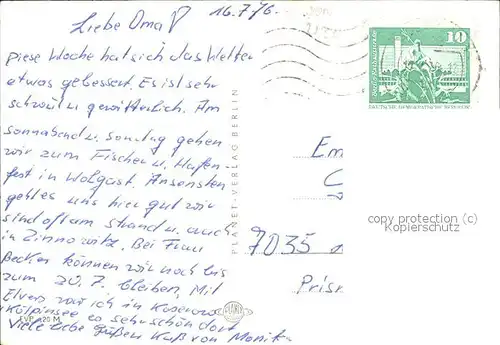 16.7.76.
Liebe Oma!
Diese Woche hat sich das Wetter
etwas gebessert. Es ist sehr
schwül u. gewitterlich. Am
Sonnabend u. Sonntag gehen
wir zum Fischer u. Hafen-
fest in Wolgast. Ansonsten
geht es uns hier gut wir
sind oft am Strand u. auch
in Zinnowitz. Bei Frau
Becker können wir noch bis
zum 20.7. bleiben. Mit
Elvers war ich in Koserow
Kölpinsee es sehr schön dort
Viele liebe Grüße u. Kuß von Monika
EVP 0,20 M
PLANET-VERLAG BERLIN
PLANET
10
Berlin, Rathausstraße
DEUTSCHE DEMOKRATISCHE REPUBLIK
Em
7035
Prisn
copyright protection (c)
Kopierschutz